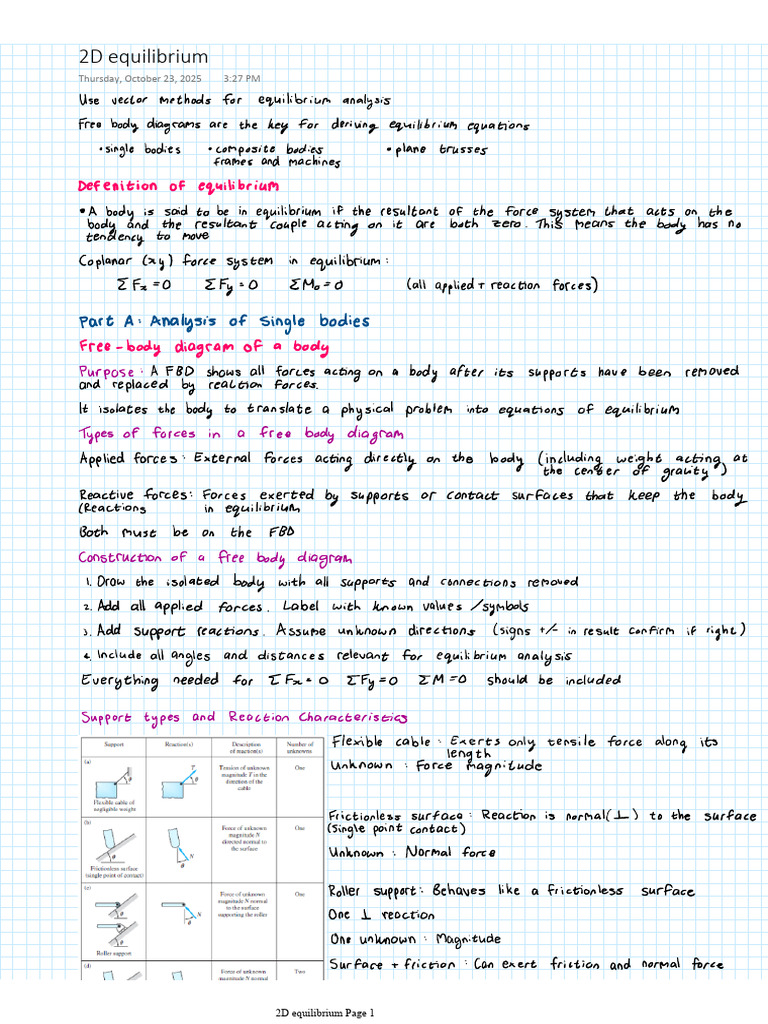 2D equilibrium
Thursday, October 23, 2025 3:27 PM
Use vector methods for equilibrium analysis
Free body diagrams are the key for deriving equilibrium equations
• single bodies • composite bodies • plane trusses
frames and machines
Defenition of equilibrium
• A body is said to be in equilibrium if the resultant of the force system that acts on the
body and the resultant couple acting on it are both zero. This means the body has no
tendency to move
Coplanar (xy) force system in equilibrium:
ΣFx = 0 ΣFy = 0 ΣMo = 0 (all applied + reaction forces)
Part A: Analysis of single bodies
Free-body diagram of a body
Purpose: A FBD shows all forces acting on a body after its supports have been removed
and replaced by reaction forces.
It isolates the body to translate a physical problem into equations of equilibrium
Types of forces in a free body diagram
Applied forces: External forces acting directly on the body (including weight acting at
the center of gravity)
Reactive forces: Forces exerted by supports or contact surfaces that keep the body
(Reactions in equilibrium
Both must be on the FBD
Construction of a free body diagram
1. Draw the isolated body with all supports and connections removed
2. Add all applied forces. Label with known values /symbols
3. Add support reactions. Assume unknown directions (signs +/- in result confirm if right)
4. Include all angles and distances relevant for equilibrium analysis
Everything needed for ΣFx = 0 ΣFy = 0 ΣM = 0 should be included
Support types and Reaction Characteristics
Support Reaction(s) Description of reaction(s) Number of unknowns
(a)
θ
T
θ
Tension of unknown
magnitude T in the
direction of the
cable
One
Flexible cable of
negligible weight
Flexible cable: Exerts only tensile force along its
length
Unknown: Force magnitude
(b)
θ
N
θ
Force of unknown
magnitude N
directed normal to
the surface
One
Frictionless surface
(single point of contact)
Frictionless surface: Reaction is normal(⊥) to the surface
(Single point contact)
Unknown: Normal force
(c)
θ
θ
N
θ
Force of unknown
magnitude N normal
to the surface
supporting the roller
One
Roller support
Roller support: Behaves like a frictionless surface
One ⊥ reaction
One unknown: Magnitude
(d)
Force of unknown
magnitude N normal
Two
Surface + friction: Can exert friction and normal force
2D equilibrium Page 1